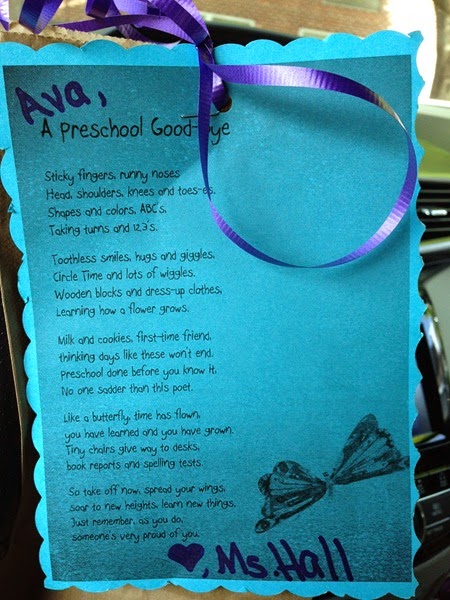 Ava,
A Preschool Good-Bye
Sticky fingers, runny noses
Head, shoulders, knees and toes-es.
Shapes and colors, ABC's,
Taking turns and 123's.
Toothless smiles, hugs and giggles,
Circle Time and lots of wiggles.
Wooden blocks and dress-up clothes,
Learning how a flower grows.
Milk and cookies, first-time friend,
thinking days like these won't end.
Preschool done before you know it,
No one sadder than this poet.
Like a butterfly, time has flown,
you have learned and you have grown.
Tiny chairs give way to desks,
book reports and spelling tests.
So take off now, spread your wings,
soar to new heights, learn new things.
Just remember, as you do,
someone's very proud of you.
♥, Ms. Hall